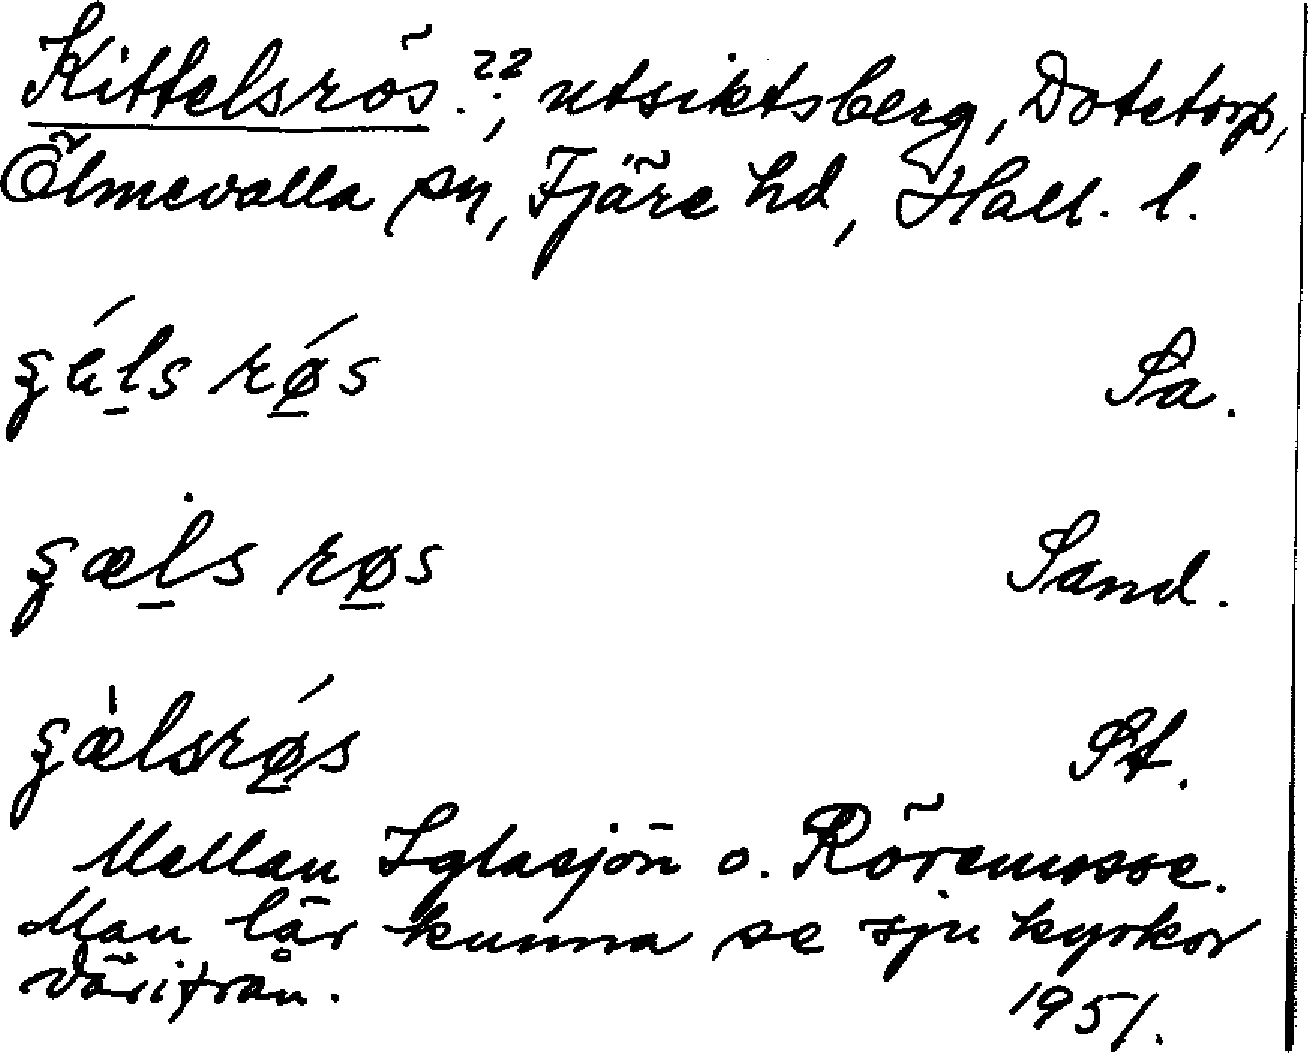 Kittelsrös ??, utsiktsberg, Dotetorp,
Ölmevalla sn, Fjäre hd, Hall. l.
røs Sa.
røs Sand.
St.
Mellan Iglasjön o. Röremosse.
Man lär kunna se sju kyrkor
därifrån. 1951.